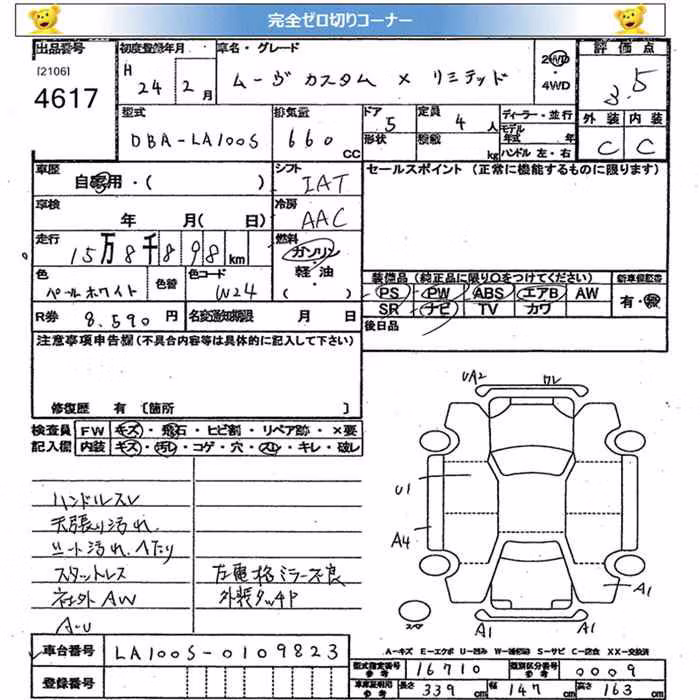 完全ゼロ切りコーナー
出品番号 [2106] 4617
初度登録年月 H 24 年 2 月
車名・グレード ムーヴ カスタム X リミテッド
2WD・4WD
評価点 3.5
外装 C 内装 C
型式 DBA-LA100S
排気量 660 CC
ドア 5 形状
定員 4 人 積載 kg
ディーラー・並行
モデル年式 年
ハンドル 左・右
車歴 自家用・( )
シフト IAT
セールスポイント (正常に機能するものに限ります)
車検 年 月( 日)
冷房 AAC
走行 15万8千898 km
燃料 ガソリン・軽油 ( )
色 パールホワイト 色替 色コード W24
装備品 (純正品に限り○をつけてください)
PS PW ABS エアB AW
SR ナビ TV カワ
新車保証書 有・無
R券 8,590 円 名変通知期限 月 日
後日品
注意事項申告欄 (不具合内容等は具体的に記入して下さい)
修復歴 有 [箇所 ]
検査員記入欄 FW キズ・飛石・ヒビ割・リペア跡・×要
内装 キズ・汚れ・コゲ・穴・スレ・キレ・破レ
ハンドルスレ
天張り汚れ
シート汚れ、ヘタリ
スタットレス
社外AW
A-U
左電格ミラー不良
外装タッチP
UA2 ワレ
U1
A4
A1
A1 A1
スペア
A-キズ E-エクボ U-凹み W-補修跡 S-サビ C-腐食 XX-交換済
車台番号 LA100S-0109823
登録番号
型式指定番号参考 16710 類別区分番号参考 0009
車庫証明用参考 長さ 339 cm 幅 147 cm 高さ 163 cm